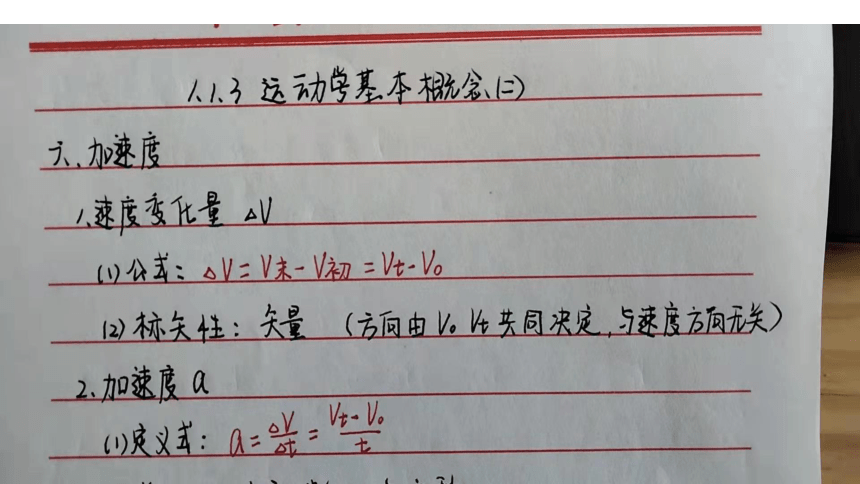 1.1.3 运动学基本概念(二)
六、加速度
1.速度变化量 △V
(1)公式：△V=V末-V初=Vt-V0
(2)标矢性：矢量 (方向由V0 Vt共同决定,与速度方向无关)
2.加速度 a
(1)定义式：a=△V/△t=Vt-V0/t